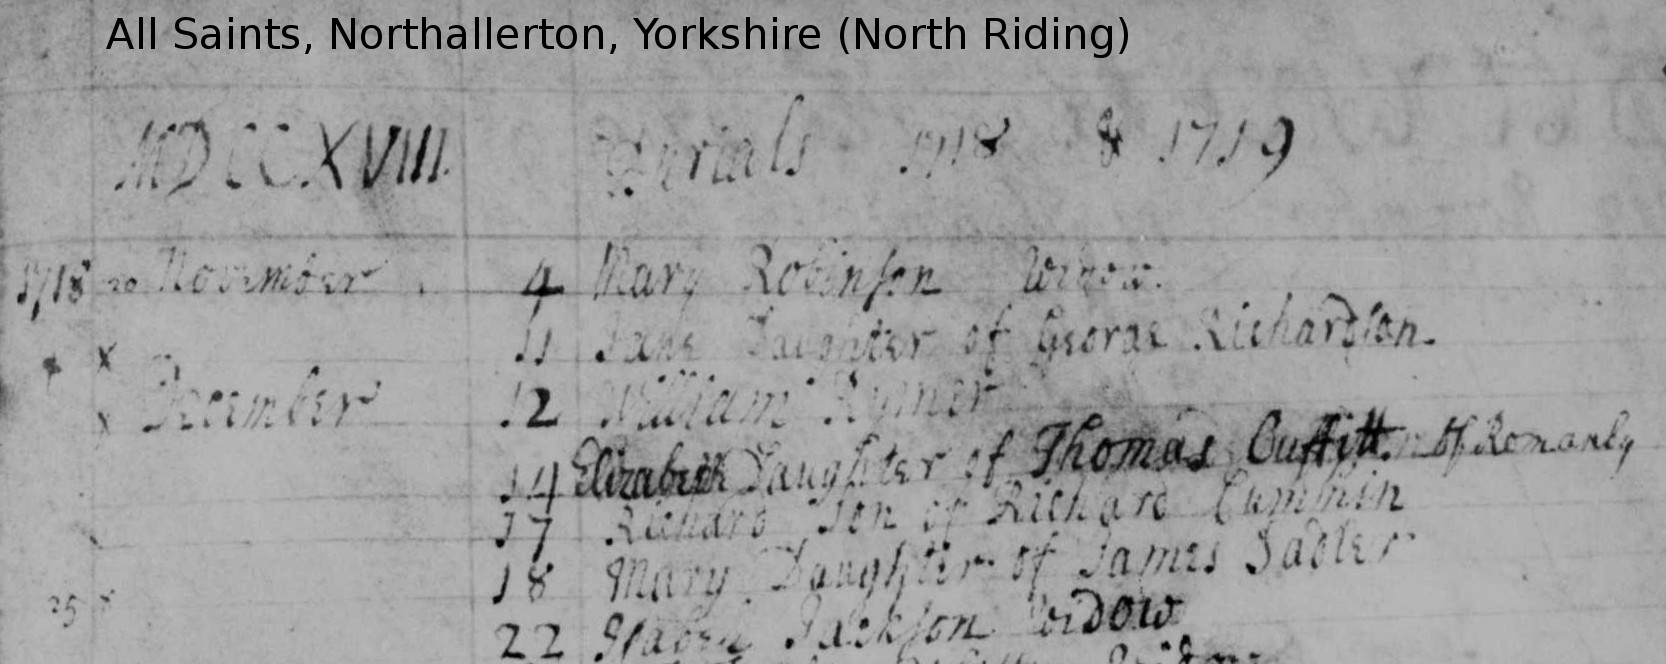 All Saints, Northallerton, Yorkshire (North Riding)
MDCCXVIII. Burials 1718 & 1719
1718 20 November 4 Mary Robinson Widow.
x 11 Jane Daughter of George Richardson.
x December 12 William Rymer
14 Elizabeth Daughter of Thomas Cuffitt of Romanby
17 Richard Son of Richard Cummin
18 Mary Daughter of James Sadler
25 x
22 Isabell Jackson Widow